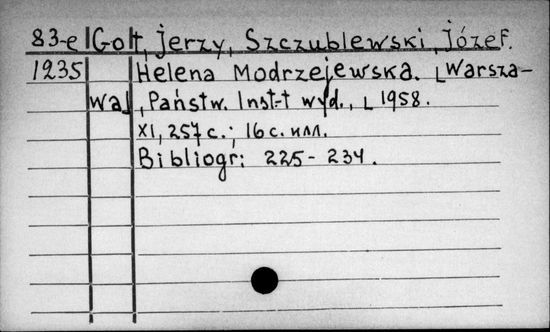 83-е Got, Jerzy, Szczublewski, Józef.
1235 Helena Modrzejewska. [Warsza-
wa], Państw. Inst-t wyd., [1958.
XI, 257 с.; 16 с. илл.
Bibliogr: 225-234.